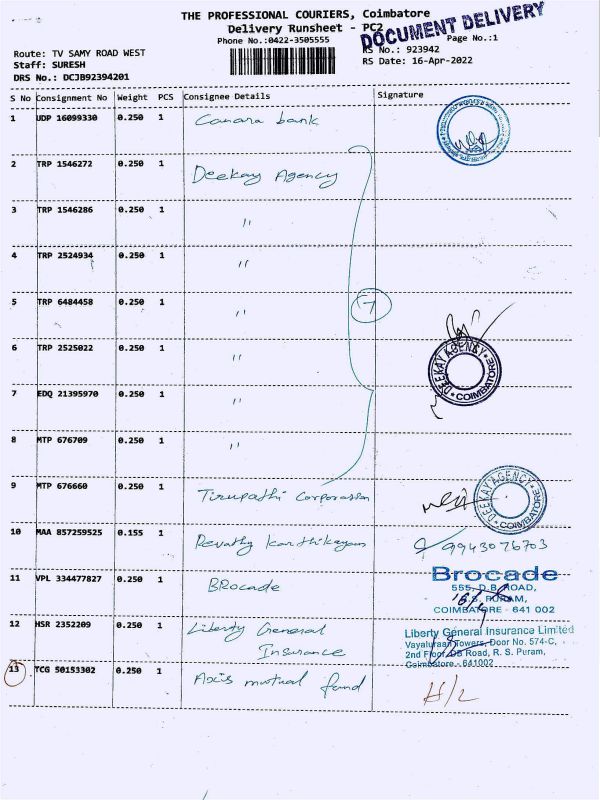 THE PROFESSIONAL COURIERS, Coimbatore
Delivery Runsheet - PC2
DOCUMENT DELIVERY
Phone No.:0422-3505555
Page No.:1
Route: TV SAMY ROAD WEST
RS No.: 923942
Staff: SURESH
RS Date: 16-Apr-2022
DRS No.: DCJB92394201
S No Consignment No Weight PCS Consignee Details Signature
1 UDP 16099330 0.250 1 Canara bank
2 TRP 1546272 0.250 1 Deekay Agency
3 TRP 1546286 0.250 1 "
4 TRP 2524934 0.250 1 "
5 TRP 6484458 0.250 1 " 7
6 TRP 2525022 0.250 1 "
DEEKAY AGENCY * COIMBATORE *
7 EDQ 21395970 0.250 1 "
8 MTP 676709 0.250 1 "
9 MTP 676660 0.250 1 Tirupathi Corporation
DEEKAY AGENCY * COIMBATORE *
10 MAA 857259525 0.155 1 Revathy Karthikayan 9943076703
11 VPL 334477827 0.250 1 BRocade
Brocade
555, D.B. ROAD,
R.S. PURAM,
COIMBATORE - 641 002
12 HSR 2352209 0.250 1 Liberty General
Insurance
Liberty General Insurance Limited
Vayaluraan Towers, Door No. 574-C,
2nd Floor, DB Road, R. S. Puram,
Coimbatore - 641002
13 TCG 50153302 0.250 1 Axis mutual fund H/L